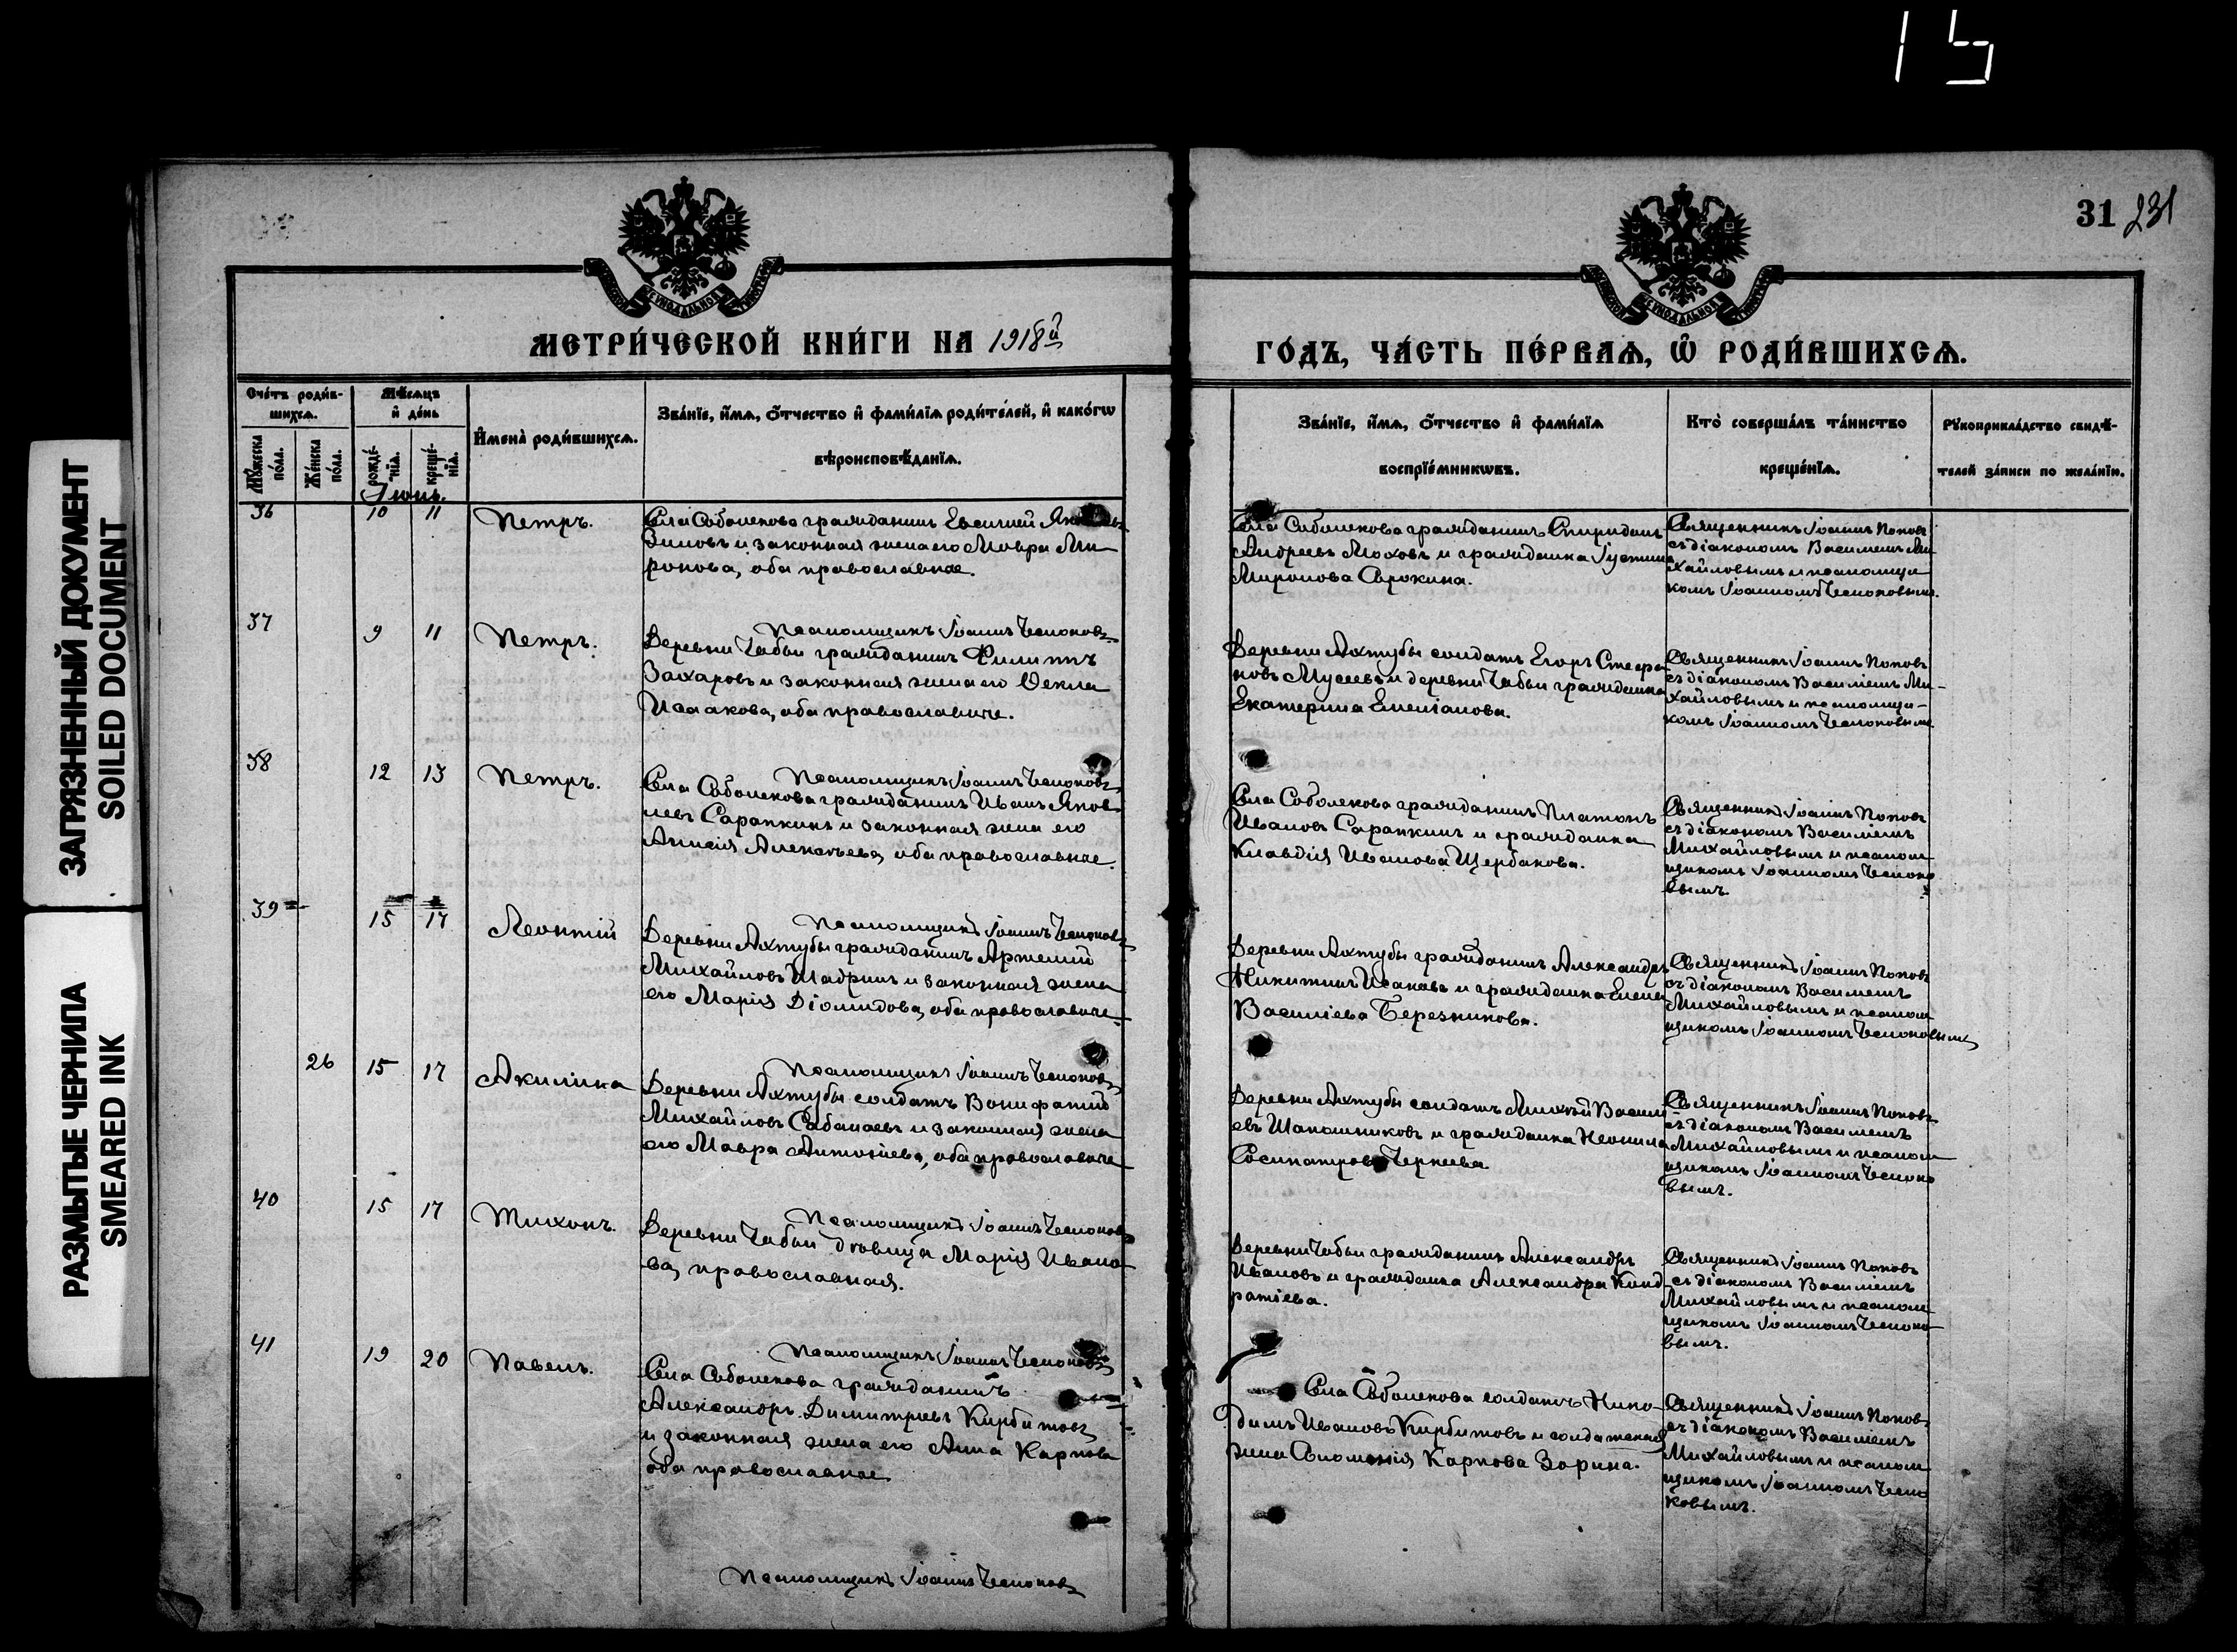 15
ЗАГРЯЗНЕННЫЙ ДОКУМЕНТ
SOILED DOCUMENT
РАЗМЫТЫЕ ЧЕРНИЛА
SMEARED INK
31 231
МЕТРИ́ЧЕСКОЙ КНИ́ГИ НА 1918й
ГО́ДЪ, ЧА́СТЬ ПЕ́РВАѦ, Ѽ РОДИ́ВШИХСѦ.
Счéтъ роди́в-
шихсѧ.
Мꙋ́жеска по́ла.
Же́нска по́ла.
Мѣ́сѧцъ
и҆ де́нь
рожде́-нїѧ.
креще́-нїѧ.
И҆мена̀ роди́вшихсѧ.
Зва́нїе, и҆́мѧ, ѻ҆́тчество и҆ фами́лїѧ роди́телей, и҆ како́гѡ
вѣроисповѣ́данїѧ.
Зва́нїе, и҆́мѧ, ѻ҆́тчество и҆ фами́лїѧ
воспрїе́мникѡвъ.
Кто̀ соверша́лъ та́инство
креще́нїѧ.
Рꙋкоприкла́дство свидѣ́-
телей за́писи по жела́нїю.
Іюнь.
36 10 11 Петръ.
Села Соболекова гражданинъ Евсигней
Зиновъ и законная жена его Мавра Ми
ронова, оба православные.
Села Соболекова гражданинъ Спиридонъ
Андреевъ Моховъ и гражданка Іустина
Миронова Сорокина.
Священникъ Іоаннъ Поповъ
съ діакономъ Василіемъ Ми
хайловымъ и псаломщи
комъ Іоанномъ Чесноковымъ.
Псаломщикъ Іоаннъ Чесноковъ
37 9 11 Петръ.
Деревни Чабьи гражданинъ Филиппъ
Захаровъ и законная жена его Ѳекла
Исаакова, оба православные.
Деревни Ахтубы солдатъ Егоръ Стефа
новъ Мусеевъ и деревни Чабьи гражданка
Екатерина Емеліанова.
Священникъ Іоаннъ Поповъ
съ діакономъ Василіемъ Ми-
хайловымъ и псаломщи-
комъ Іоанномъ Чесноковымъ
Псаломщикъ Іоаннъ Чесноковъ
38 12 13 Петръ.
Села Соболекова гражданинъ Иванъ Яков
левъ Сарапкинъ и законная жена его
Анисія Алексѣева, оба православные.
Села Соболекова гражданинъ Платонъ
Ивановъ Сарапкинъ и гражданка
Клавдія Иванова Щербакова.
Священникъ Іоаннъ Поповъ
съ діакономъ Василіемъ
Михайловымъ и псалом
щикомъ Іоанномъ Чесноко
вымъ.
Псаломщикъ Іоаннъ Чесноковъ
39 15 17 Леонтій
Деревни Ахтубы гражданинъ Артемій
Михайловъ Шадринъ и законная жена
его Марія Діомидова, оба православные
Деревни Ахтубы гражданинъ Александръ
Никитинъ Исаковъ и гражданка Елена
Василіева Березникова.
Священникъ Іоаннъ Поповъ
съ діакономъ Василіемъ
Михайловымъ и псалом
щикомъ Іоанномъ Чесноковымъ
Псаломщикъ Іоаннъ Чесноковъ
26 15 17 Акилина
Деревни Ахтубы солдатъ Вонифатій
Михайловъ Сабанаевъ и законная жена
его Мавра Антоніева, оба православные
Деревни Ахтубы солдатъ Василі
евъ Шапошниковъ и гражданка Неонила
Сосипатрова
Священникъ Іоаннъ Поповъ
съ діакономъ Василіемъ
Михайловымъ и псалом
щикомъ Іоанномъ Чесноко
вымъ.
Псаломщикъ Іоаннъ Чесноковъ
40 15 17 Тихонъ.
Деревни Чабьи дѣвица Марія Ивано
ва, православная.
Деревни Чабьи гражданинъ Александръ
Ивановъ и гражданка Александра Конд
ратіева.
Священникъ Іоаннъ Поповъ
съ діакономъ Василіемъ
Михайловымъ и псалом
щикомъ Іоанномъ Чесноко
вымъ.
Псаломщикъ Іоаннъ Чесноковъ
41 19 20 Павелъ.
Села Соболекова гражданинъ
Александръ Димитріевъ Кирбитовъ
и законная жена его Анна Карпова
оба православные
Села Соболекова солдатъ Нико-
димъ Ивановъ Кирбитовъ и солдатская
жена Соломонія Карпова Зорина.
Священникъ Іоаннъ Поповъ
съ діакономъ Василіемъ
Михайловымъ и псалом
щикомъ Іоанномъ Чесно
ковымъ.
Псаломщикъ Іоаннъ Чесноковъ